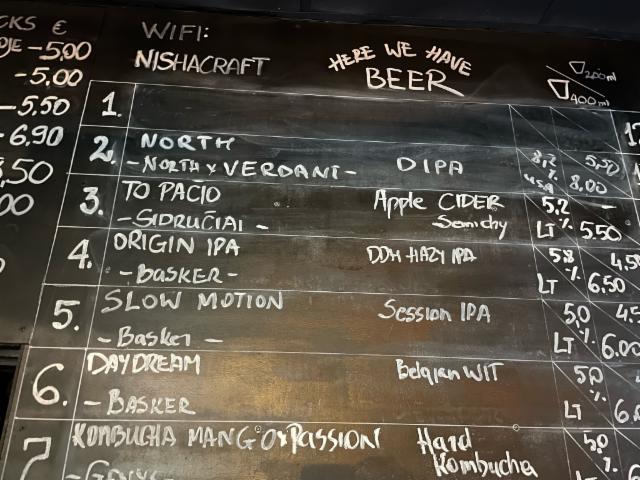 CKS €
OJE -5,00
-5.00
-5.50
-6.90
,50
00
WIFI:
NISHACRAFT
HERE WE HAVE
BEER
200ml
400ml
1.
2. NORTH
-NORTH x VERDANT- DIPA 8,2 % 5,50
USA 8,00
3. TO PACIO Apple CIDER 5,2 % -
-SIDRUČIAI- Semidry LT 5.50
4. ORIGIN IPA DDH HAZY IPA 5.8 % 4,50
-BASKER- LT 6,50
5. SLOW MOTION Session IPA 5,0 % 4,5
-Basker- LT 6.00
6. DAYDREAM Belgian WIT 5,0 %
-BASKER LT 6,0
7 KOMBUCHA MANGO x PASSION Hard 5,0 %
Kombucha